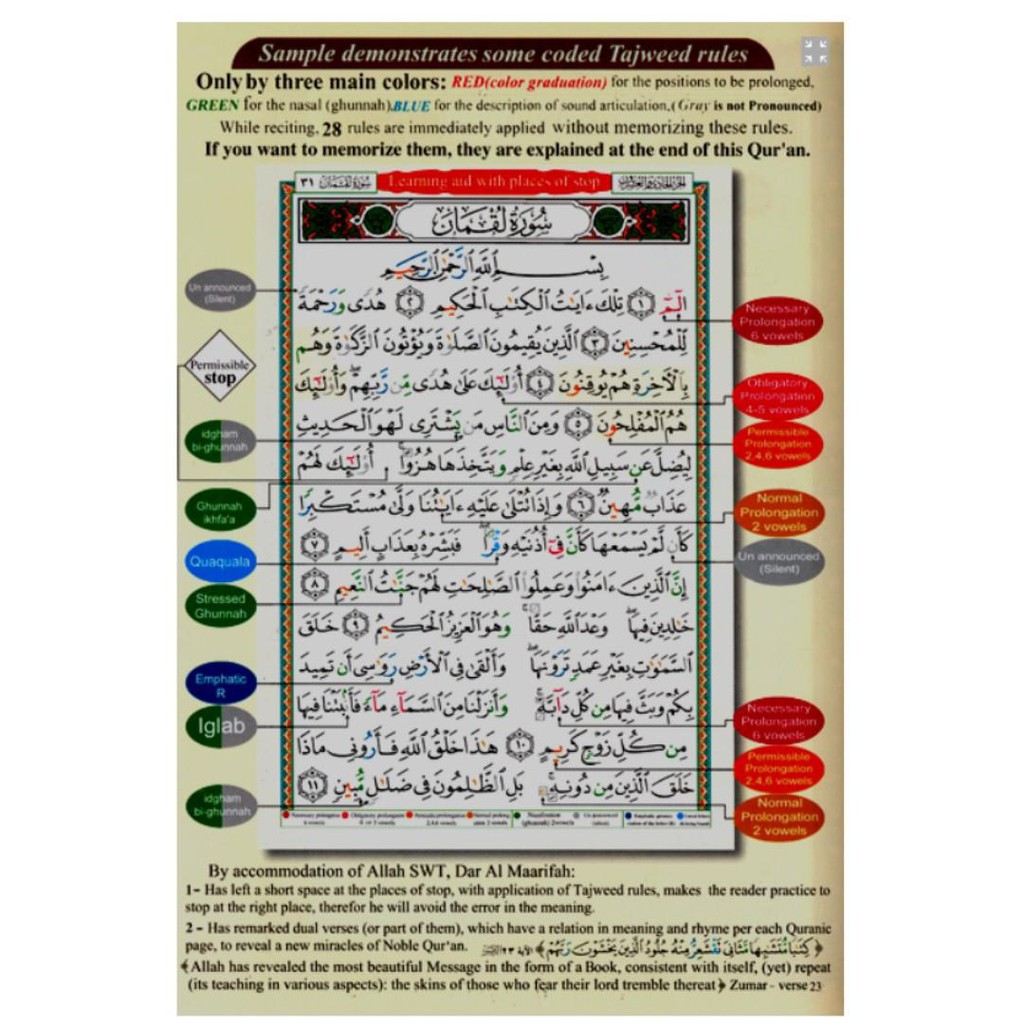 Sample demonstrates some coded Tajweed rules
Only by three main colors: RED(color graduation) for the positions to be prolonged,
GREEN for the nasal (ghunnah),BLUE for the description of sound articulation,( Gray is not Pronounced)
While reciting, 28 rules are immediately applied without memorizing these rules.
If you want to memorize them, they are explained at the end of this Qur'an.
٣١ سورة لقمان
Learning aid with places of stop
سُورَةُ لُقْمَان
بِسْمِ ٱللَّهِ ٱلرَّحْمَٰنِ ٱلرَّحِيمِ
الٓمٓ ١ تِلْكَ ءَايَٰتُ ٱلْكِتَٰبِ ٱلْحَكِيمِ ٢ هُدًى وَرَحْمَةً
لِّلْمُحْسِنِينَ ٣ ٱلَّذِينَ يُقِيمُونَ ٱلصَّلَوٰةَ وَيُؤْتُونَ ٱلزَّكَوٰةَ وَهُم
بِٱلْءَاخِرَةِ هُمْ يُوقِنُونَ ٤ أُو۟لَٰٓئِكَ عَلَىٰ هُدًى مِّن رَّبِّهِمْ ۖ وَأُو۟لَٰٓئِكَ
هُمُ ٱلْمُفْلِحُونَ ٥ وَمِنَ ٱلنَّاسِ مَن يَشْتَرِى لَهْوَ ٱلْحَدِيثِ
لِيُضِلَّ عَن سَبِيلِ ٱللَّهِ بِغَيْرِ عِلْمٍ وَيَتَّخِذَهَا هُزُوًا ۚ أُو۟لَٰٓئِكَ لَهُمْ
عَذَابٌ مُّهِينٌ ٦ وَإِذَا تُتْلَىٰ عَلَيْهِ ءَايَٰتُنَا وَلَّىٰ مُسْتَكْبِرًا
كَأَن لَّمْ يَسْمَعْهَا كَأَنَّ فِىٓ أُذُنَيْهِ وَقْرًا ۖ فَبَشِّرْهُ بِعَذَابٍ أَلِيمٍ ٧
إِنَّ ٱلَّذِينَ ءَامَنُوا۟ وَعَمِلُوا۟ ٱلصَّٰلِحَٰتِ لَهُمْ جَنَّٰتُ ٱلنَّعِيمِ ٨
خَٰلِدِينَ فِيهَا ۖ وَعْدَ ٱللَّهِ حَقًّا ۚ وَهُوَ ٱلْعَزِيزُ ٱلْحَكِيمُ ٩ خَلَقَ
ٱلسَّمَٰوَٰتِ بِغَيْرِ عَمَدٍ تَرَوْنَهَا ۖ وَأَلْقَىٰ فِى ٱلْأَرْضِ رَوَٰسِىَ أَن تَمِيدَ
بِكُمْ وَبَثَّ فِيهَا مِن كُلِّ دَآبَّةٍ ۚ وَأَنزَلْنَا مِنَ ٱلسَّمَآءِ مَآءً فَأَنۢبَتْنَا فِيهَا
مِن كُلِّ زَوْجٍ كَرِيمٍ ١٠ هَٰذَا خَلْقُ ٱللَّهِ فَأَرُونِى مَاذَا
خَلَقَ ٱلَّذِينَ مِن دُونِهِ ۚ بَلِ ٱلظَّٰلِمُونَ فِى ضَلَٰلٍ مُّبِينٍ ١١
Un announced
(Silent)
Permissible
stop
idgham
bi-ghunnah
Ghunnah
ikhfa'a
Quaquala
Stressed
Ghunnah
Emphatic
R
Iglab
idgham
bi-ghunnah
Necessary
Prolongation
6 vowels
Obligatory
Prolongation
4-5 vowels
Permissible
Prolongation
2,4,6 vowels
Normal
Prolongation
2 vowels
Un announced
(Silent)
Necessary
Prolongation
6 vowels
Permissible
Prolongation
2,4,6 vowels
Normal
Prolongation
2 vowels
By accommodation of Allah SWT, Dar Al Maarifah:
1- Has left a short space at the places of stop, with application of Tajweed rules, makes the reader practice to
stop at the right place, therefor he will avoid the error in the meaning.
2 - Has remarked dual verses (or part of them), which have a relation in meaning and rhyme per each Quranic
page, to reveal a new miracles of Noble Qur'an. ﴿ كِتَٰبًا مُّتَشَٰبِهًا مَّثَانِىَ تَقْشَعِرُّ مِنْهُ جُلُودُ ٱلَّذِينَ يَخْشَوْنَ رَبَّهُمْ ﴾ الآية ٢٣
﴾Allah has revealed the most beautiful Message in the form of a Book, consistent with itself, (yet) repeat
(its teaching in various aspects): the skins of those who fear their lord tremble thereat﴿ Zumar - verse 23